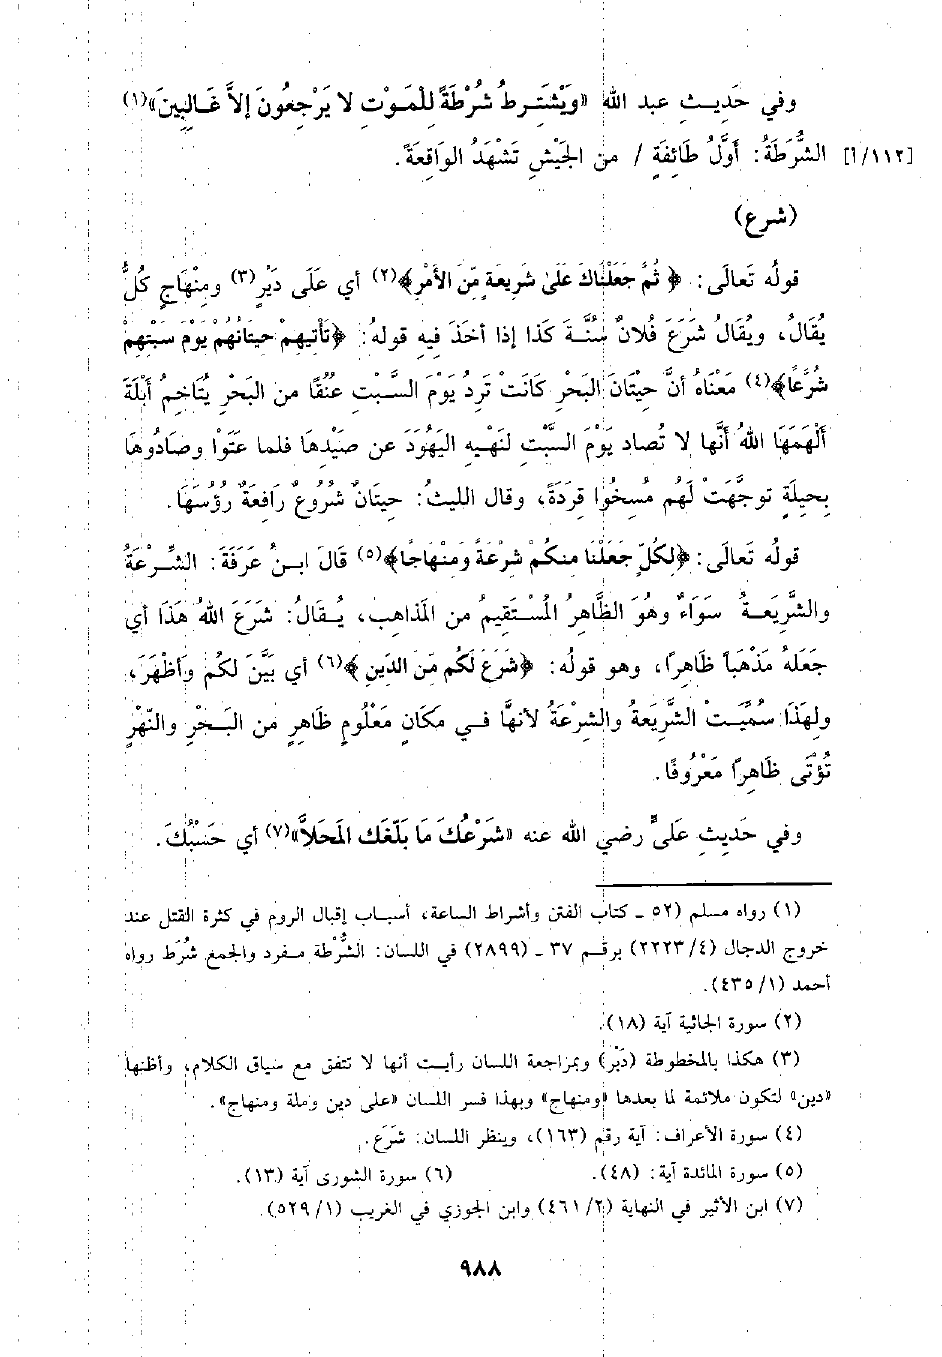 وفي حَدِيثِ عبد الله «وَيَشْتَرِطُ شُرْطَةً لِلْمَوْتِ لا يَرْجِعُونَ إلاَّ غَالِبِينَ»(١)
[١١٢/أ] الشُّرَطَةُ: أوَّلُ طَائِفَةٍ / من الجَيْشِ تَشْهَدُ الوَاقِعَةَ.
(شرع)
قولُه تَعالَى: ﴿ ثُمَّ جَعَلْنَاكَ عَلَىٰ شَرِيعَةٍ مِّنَ الأَمْرِ﴾(٢) أي عَلَى دَيْرٍ(٣) ومِنْهَاجٍ كُلُّ
يُقَالُ، ويُقَالُ شَرَعَ فُلانٌ سُنَّةَ كَذا إذا أخَذَ فِيهِ قولهُ: ﴿تَأْتِيهِمْ حيتَانُهُمْ يَوْمَ سَبْتِهِمْ
شُرَّعًا﴾(٤) مَعْنَاه أنَّ حِيْتَانَ البَحْرِ كَانَتْ تَرِدُ يَوْمَ السَّبْتِ عُنُقًا من البَحْرِ يُتَاخِمُ أبْلَةَ
ألْهَمَهَا اللهُ أنَّها لا تُصاد يَوْمَ السَّبْتِ لنَهْيِهِ اليَهُودَ عن صَيْدِهَا فلما عَتَوْا وصَادُوهَا
بِحيلَةٍ توجَّهَتْ لَهُم مُسِخُوا قِرَدَةً، وقال الليثُ: حيتَانٌ شُرُوعٌ رَافِعَةٌ رؤُسَهَا.
قولُه تَعالَى: ﴿لِكُلٍّ جَعَلْنَا مِنكُمْ شِرْعَةً وَمِنْهَاجًا﴾(٥) قَالَ ابنُ عَرَفَةَ: الشِّرْعَةُ
والشَّرِيعَةُ سَوَاءٌ وهُوَ الظَّاهِرُ المُسْتَقِيمُ من المَذاهِب، يُقالُ: شَرَعَ اللهُ هَذَا أي
جَعَلَهُ مَذْهَباً ظَاهِرًا، وهو قولُه: ﴿شَرَعَ لَكُم مِّنَ الدِّينِ ﴾(٦) أي بَيَّنَ لكُم وأظْهَرَ،
ولِهَذَا سُمِّيَتْ الشَّرِيعَةُ والشِرْعَةُ لأنهَّا فِي مَكَانٍ مَعْلُومٍ ظَاهِرٍ من البَحْرِ والنَّهْرِ
تُؤْتَى ظَاهِرًا مَعْرُوفًا.
وفي حَدِيثِ عَلِيٍّ رضي الله عنه «شَرْعُكَ مَا بَلّغَك المَحَلاَّ»(٧) أي حَسْبُكَ.
(١) رواه مسلم (٥٢ ـ كتاب الفتن وأشراط الساعة، أسباب إقبال الروم في كثرة القتل عند
خروج الدجال (٢٢٢٣/٤) برقم ٣٧ ـ (٢٨٩٩) في اللسان: الشُّرْطة مفرد والجمع شُرَط رواه
أحمد (٤٣٥/١).
(٢) سورة الجاثية آية (١٨).
(٣) هكذا بالمخطوطة (دَيْر) وبمراجعة اللسان رأيت أنها لا تتفق مع سياق الكلام، وأظنها
«دين» لتكون ملائمة لما بعدها «ومنهاج» وبهذا فسر اللسان «على دين وملة ومنهاج».
(٤) سورة الأعراف: آية رقم (١٦٣)، وينظر اللسان: شَرَع.
(٥) سورة المائدة آية: (٤٨). (٦) سورة الشورى آية (١٣).
(٧) ابن الأثير في النهاية (٤٦١/٢) وابن الجوزي في الغريب (٥٢٩/١).
٩٨٨